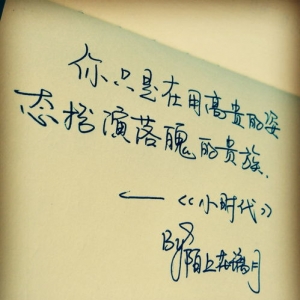 你只是在用高贵的姿
态扮演落魄的贵族.
——《小时代》
By 陌上花满月